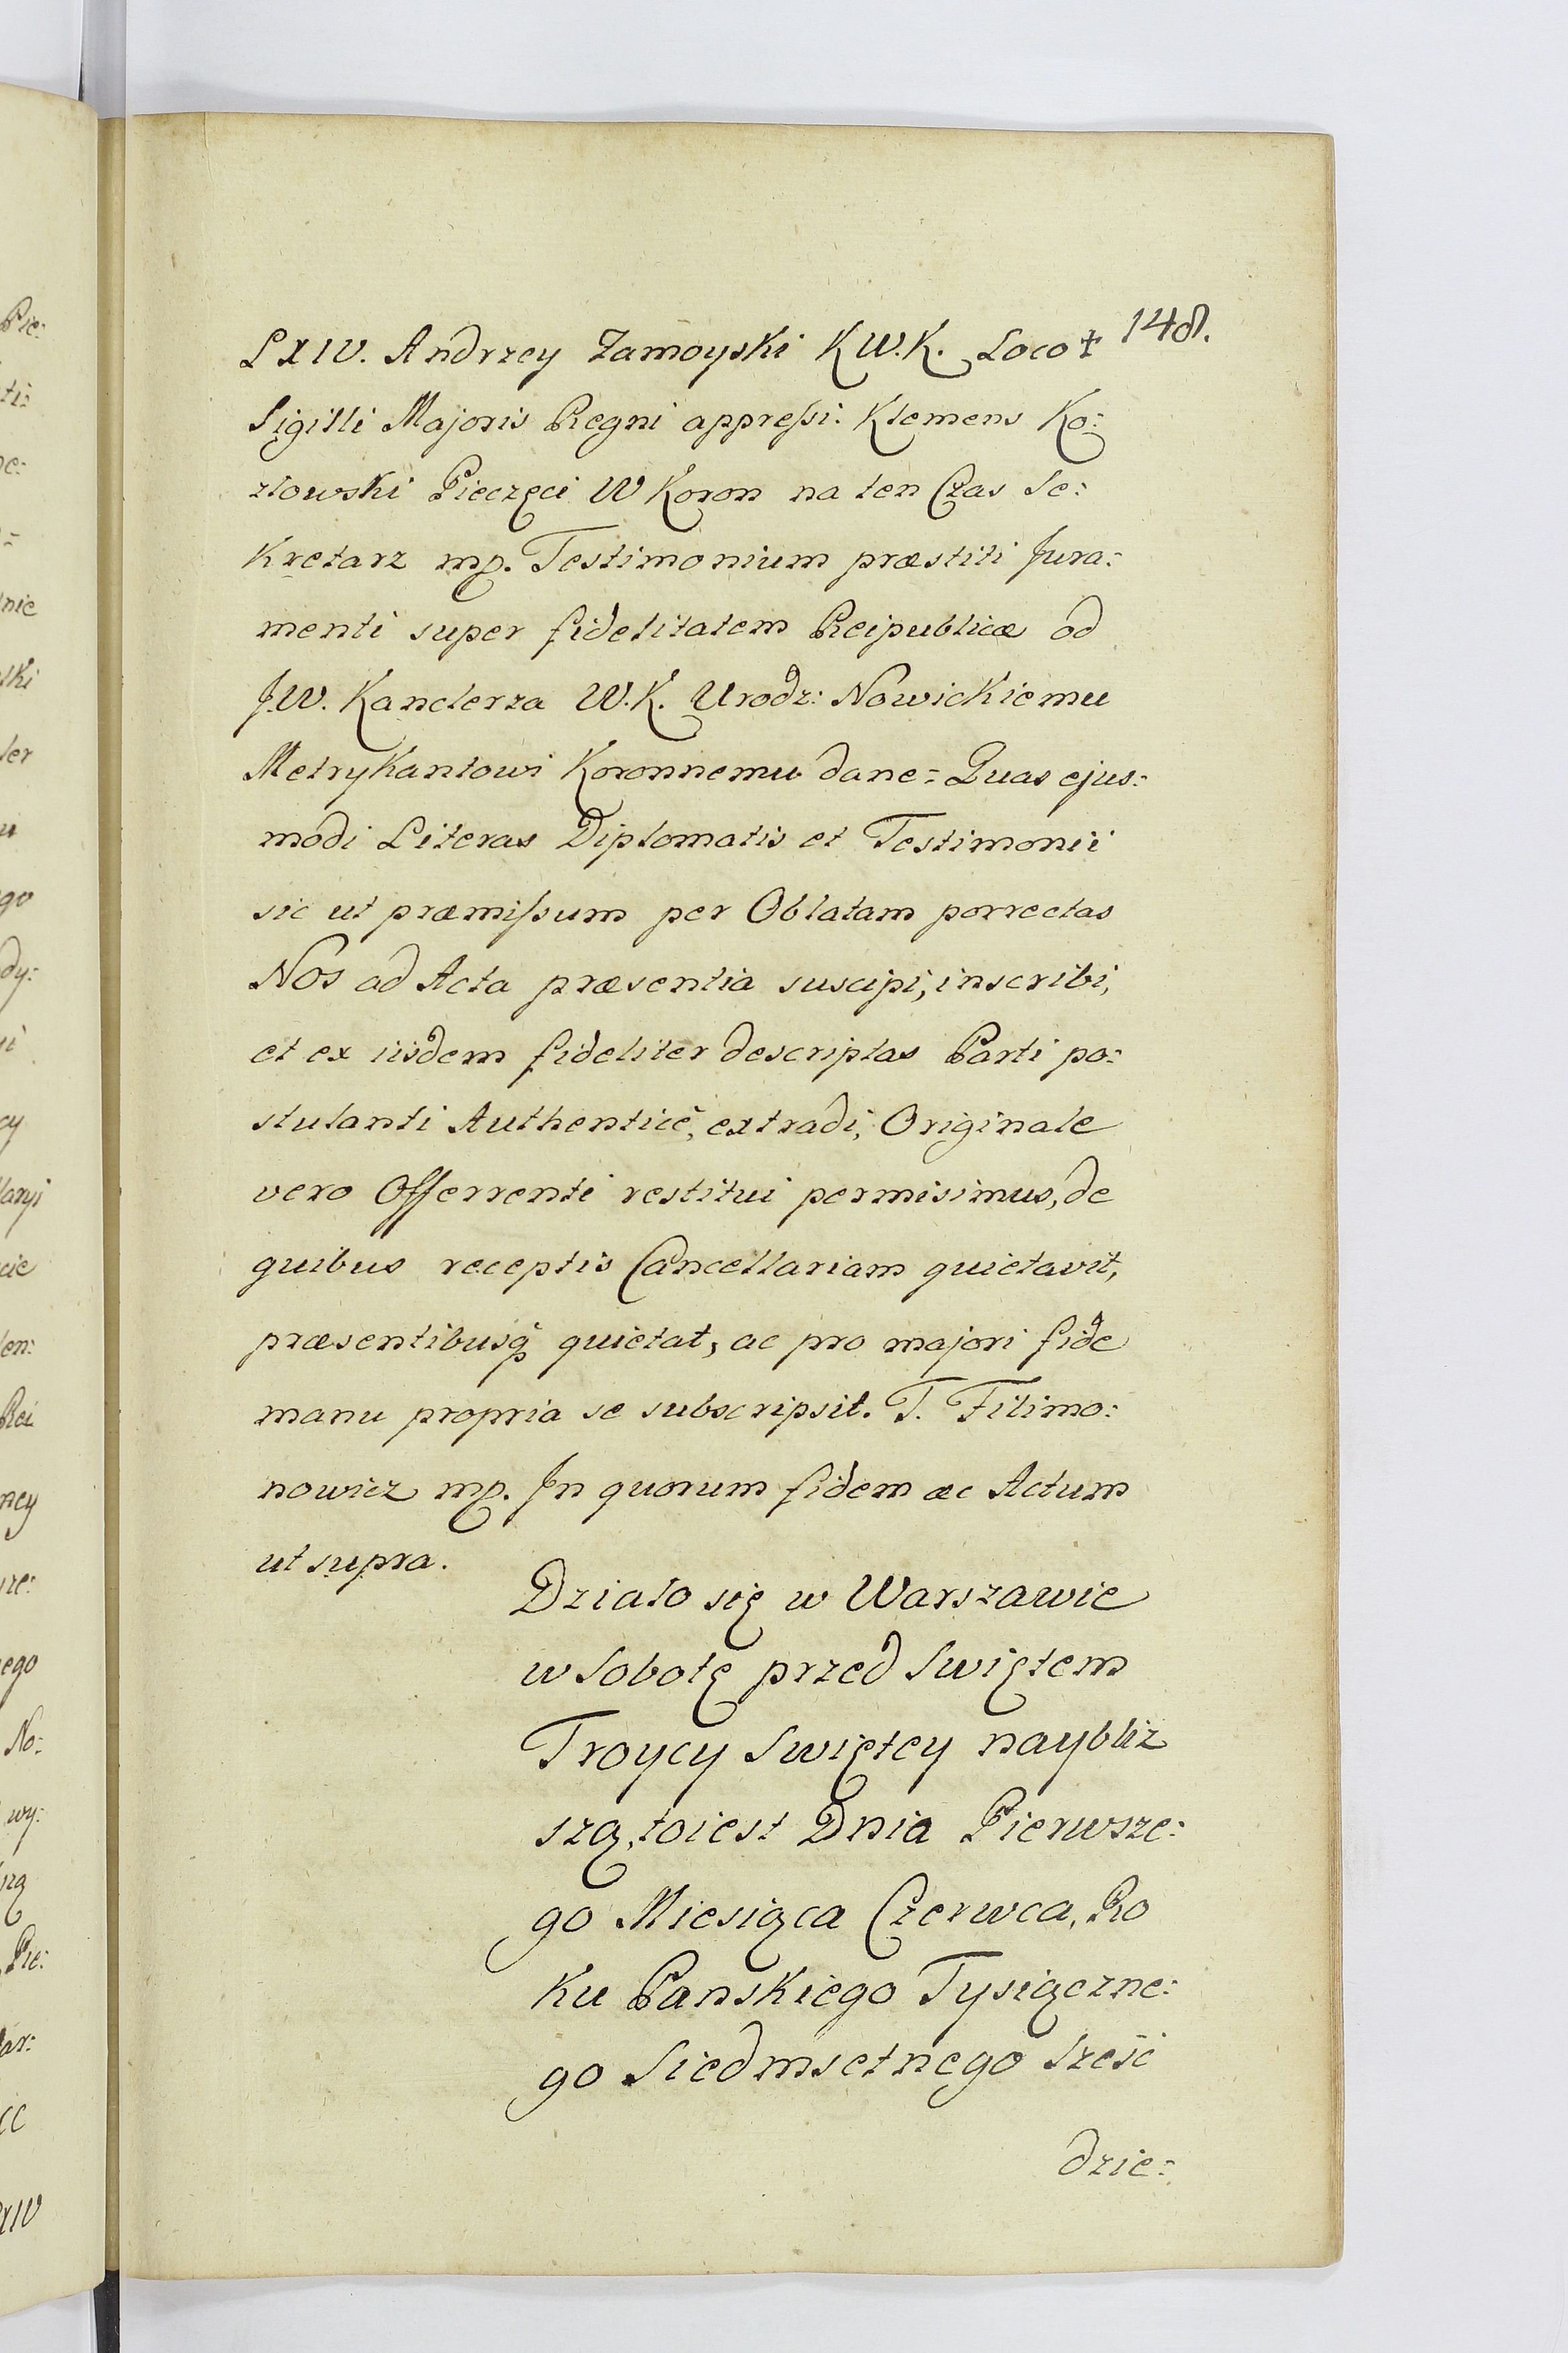 148.
LXIV. Andrzey Zamoyski K W. K. Loco +
Sigilli Majoris Regni appreſsi. Klemens Ko:
złowski Pieczęci W Koron na ten Czas Se:
Kretarz mp. Testimonium præstiti Jura:
menti super fidelitatem Reipublicæ od
J.W. Kanclerza W. K. Urodz: Nowickiemu
Metrykantowi Koronnemu dane = Quas ejus:
modi Literas Diplomatis et Testimonii
sic ut præmiſsum per Oblatam porrectas
Nos ad Acta præsentia suscipi, inscribi,
et ex iisdem fideliter descriptas Parti po:
stulanti Authenticè, extradi, Originale
vero Offerrenti restitui permisimus, de
quibus receptis Cancellariam quietavit,
præsentibusq̃ quietat, ac pro majori fide
manu propria se subscripsit. T. Filimo:
nowicz mp. Jn quorum fidem ac Actum
ut supra.
Działo się w Warszawie
w Sobotę przed Swiętem
Troycy Swiętey naybliz
szą, toiest Dnia Pierwsze:
go Miesiąca Czerwca, Ro
ku Panskiego Tysiączne:
go Siedmsetnego Sześć
dzie: